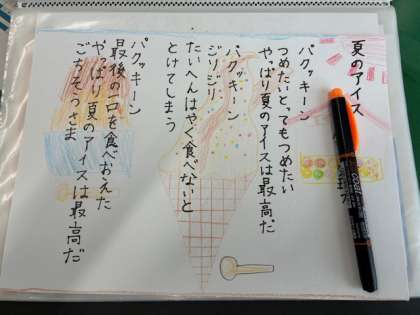 夏のアイス
パクッ キーン
つめたいとってもつめたい
やっぱり夏のアイスは最高だ
パクッ キーン
ジリジリ
たいへんはやく食べないと
とけてしまう
パクッ キーン
最後の一口を食べおえた
やっぱり夏のアイスは最高だ
ごちそうさま